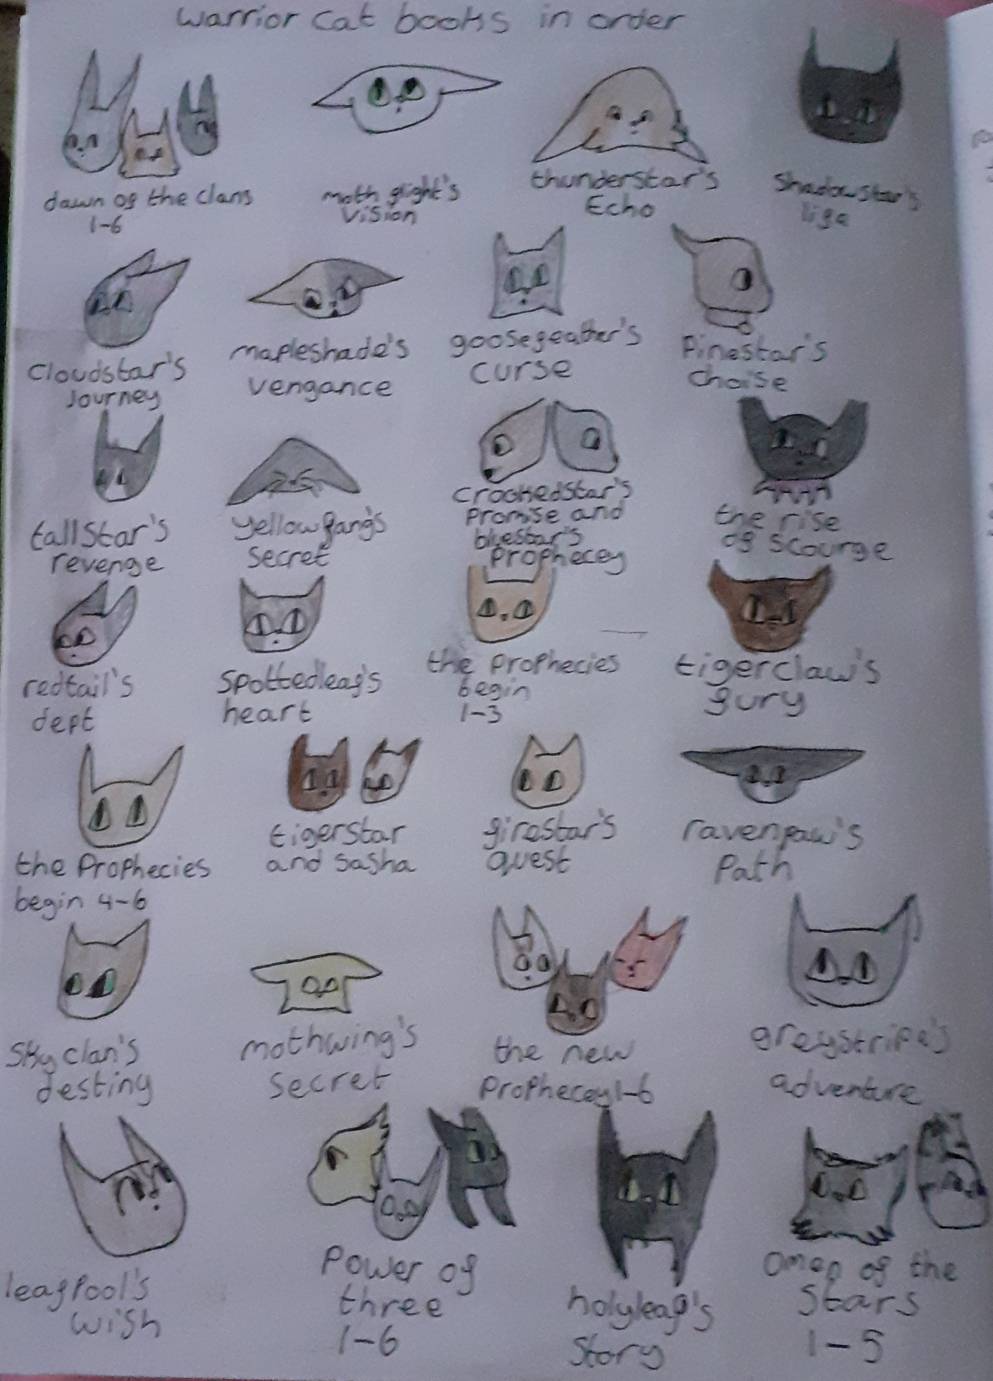 warrior cat books in order
dawn of the clans
1-6
moth flight's
vision
thunderstar's
Echo
Shadowstar's
life
cloudstar's
Journey
mapleshade's
vengance
goosefeather's
curse
Pinestar's
choise
tallstar's
revenge
yellowfang's
secret
crookedstar's
promise and
bluestar's
Prophecey
the rise
of scourge
redtail's
dept
spottedleaf's
heart
the prophecies
begin
1-3
tigerclaw's
fury
the Prophecies
begin 4-6
tigerstar
and sasha
firestar's
quest
ravenpaw's
Path
Skyclan's
destiny
mothwing's
secret
the new
Prophecey 1-6
greystripe's
adventure
leafpool's
wish
Power of
three
1-6
holyleaf's
Story
Omen of the
Stars
1-5